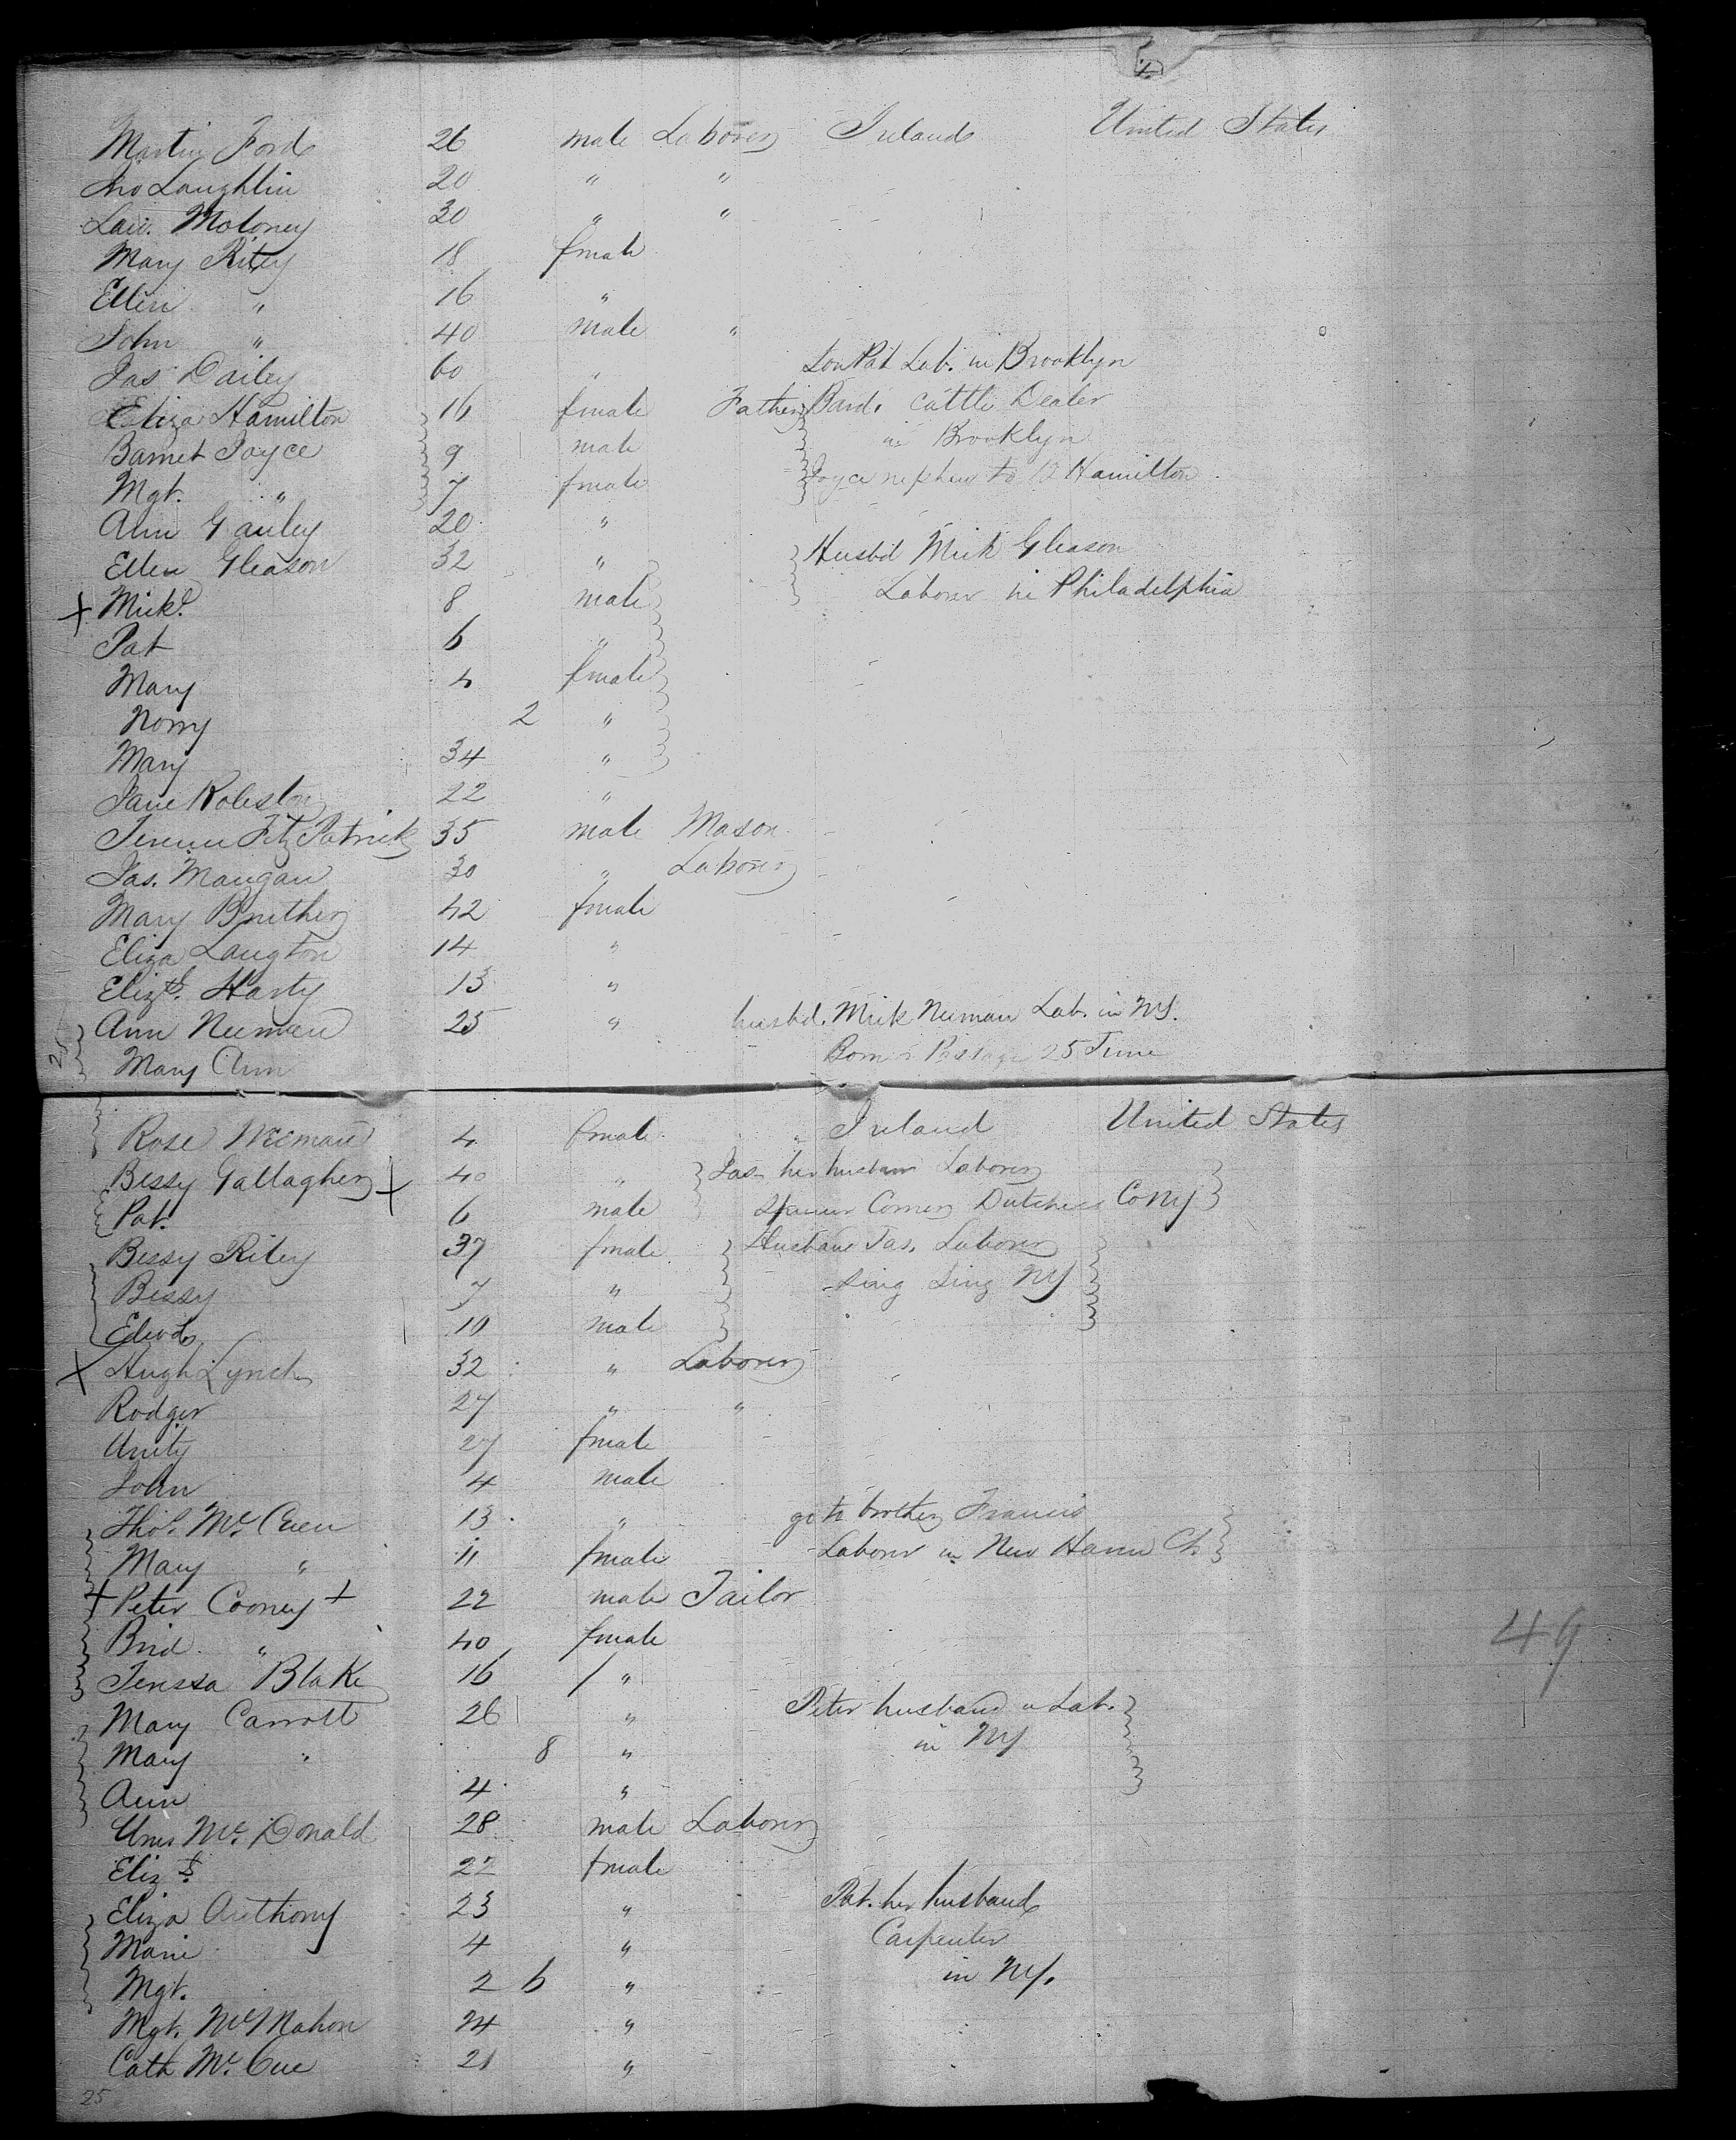 Martin Ford 26 male Laborer Ireland United States
Jno Laughlin 20 " "
Law. Moloney 30 " "
Mary Riley 18 fmale
Ellen " 16 "
John " 40 male "
Jas Dailey 60 " Son Pat Lab. in Brooklyn
Eliza Hamilton 16 fmale Father Band. Cattle Dealer
Barnet Joyce 9 male in Brooklyn
Mgt. " 7 fmale Joyce nephew to Hamilton
Ann Ganley 20 "
Ellen Gleason 32 " Husbd Mick Gleason
+ Mickl 8 male Laborer in Philadelphia
Pat 6 "
Mary 4 fmale
Norry 2 "
Mary 34 "
Jane Roleston 22 "
Fitz Patrick 35 male Mason
Jas. Mangan 30 " Laborer
Mary 42 fmale
Eliza Langton 14 "
Elizth. Harty 13 "
Ann Neeman 25 " husbd. Mick Neeman Lab. in NY.
Mary Ann Born Passage 25 June
25
Rose Neeman 4 fmale " Ireland United States
Bessy Gallagher + 40 " Jas. her husband Laborer
Pat. 6 male Corners Dutchess Co NY
Bessy Riley 37 fmale Husband Jas. Laborer
Bessy 7 " Sing Sing NY
Edwd 10 male
+ Hugh Lynch 32 " Laborer
Rodger 27 " "
Unity 27 fmale
John 4 male
Thos. Mc. 13 " go to brother Francis
Mary " 11 fmale Laborer in New Haven Ct.
+ Peter Cooney + 22 male Tailor
Brid. " 40 fmale
Teressa Blake 16 "
Mary Carroll 26 " Peter husband a Lab.
Mary " 8 " in NY
Ann 4 "
Mc. Donald 28 male Laborer
Elizth 22 fmale
Eliza Anthony 23 " Pat. her husband
Marie 4 " Carpenter
Mgt. 2 6 " in NY.
Mgt. McMahon 24 "
Cath Mc. Cue 21 "
25
49